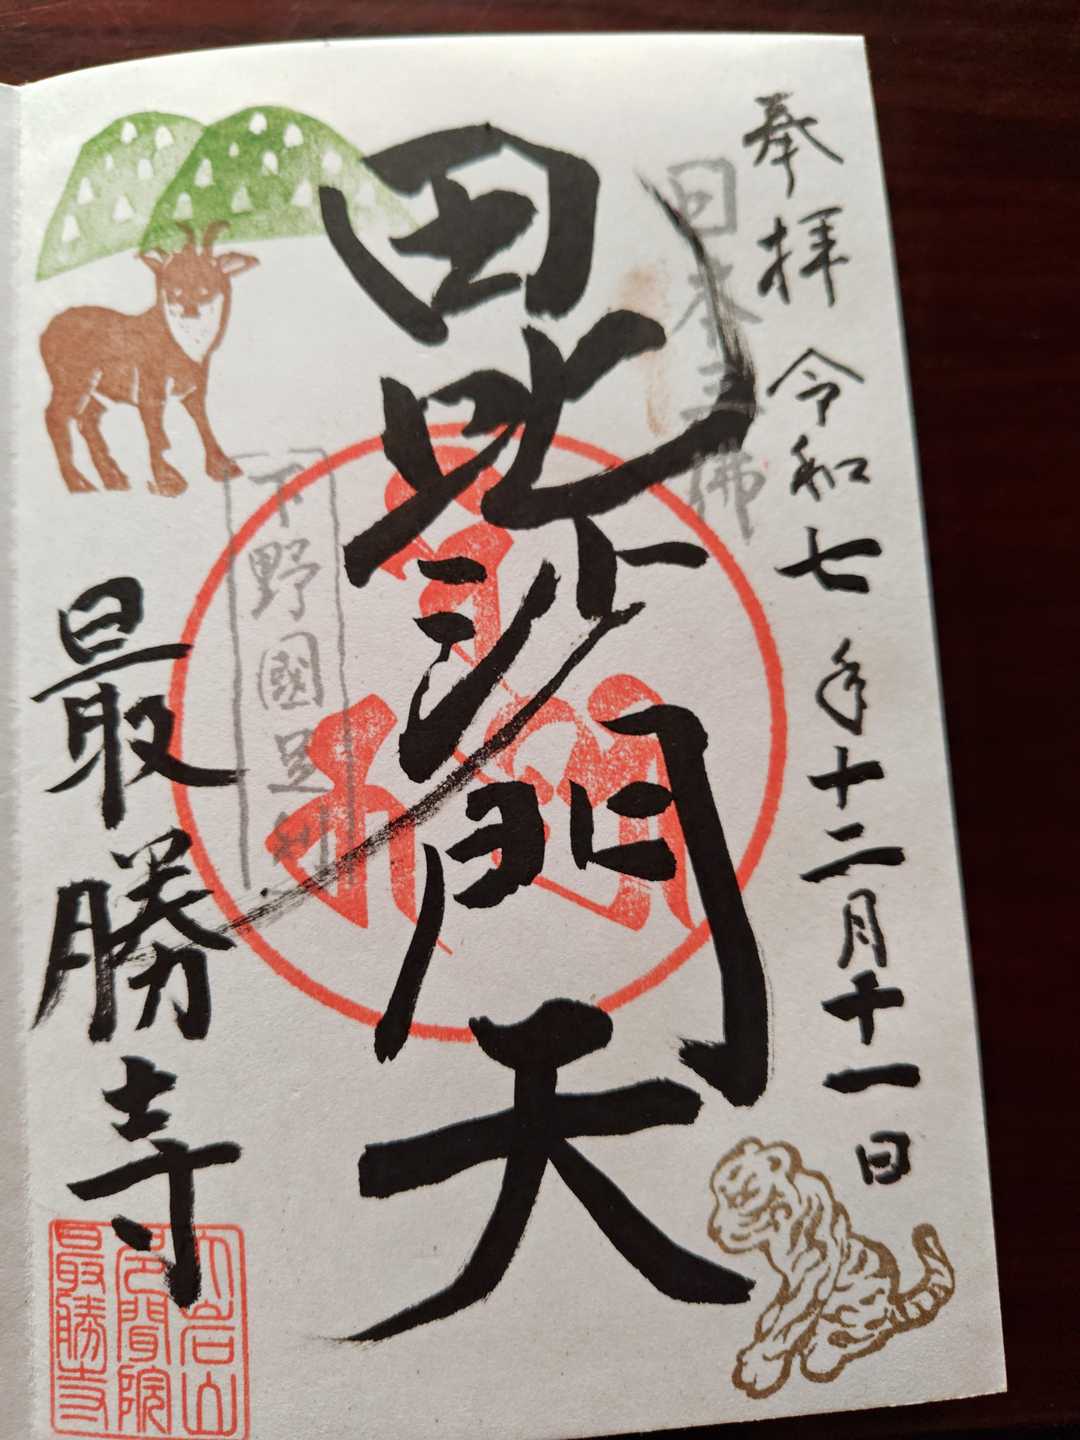 奉拝 令和七年十二月十一日
日本三佛
毘沙門天
下野國足利
最勝寺
大岩山
多聞院
最勝寺